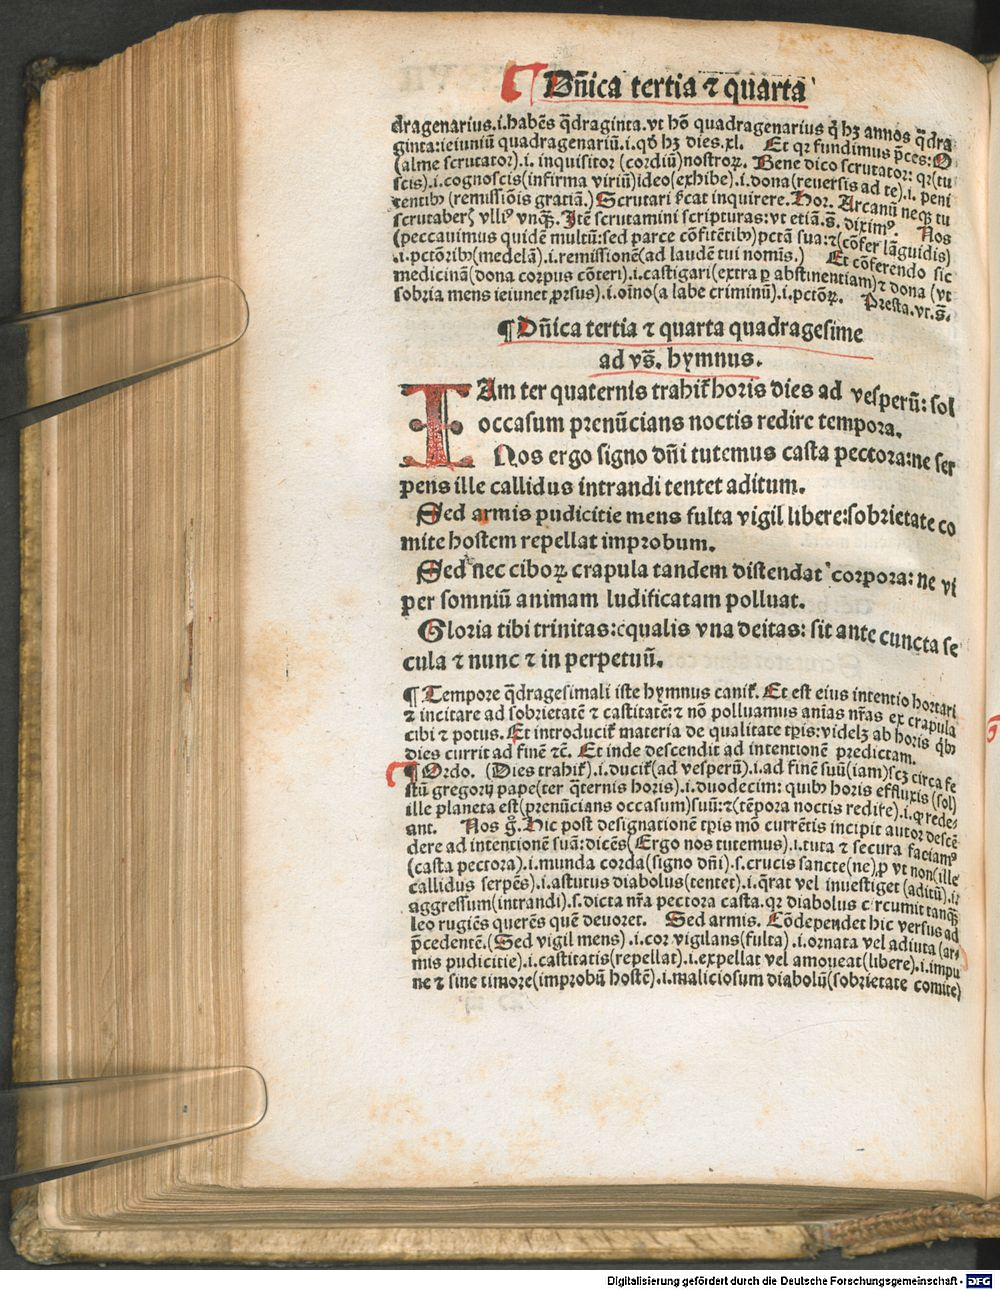 Dn̄ica tertia ⁊ quarta
dragenarius.i.habēs q̄draginta.vt hō quadragenarius q̇ hꝫ annos q̄dra
ginta:ieiuniū quadragenariū.i.qđ hꝫ dies.xl. Et qꝛ fundimus p̄ces:O
(alme scrutator).i.inquisitor (cordiū)nostroꝝ. Bene dico scrutator: qꝛ(tu
scis).i.cognoscis(infirma viriū)ideo(exhibe).i.dona(reuersis ad te).i.peni
tentibꝰ(remissiōis gratiā.) Scrutari sc̄at inquirere. Hor. Arcanū neqꝫ tu
scrutaberꝭ vlliꝰ vnqꝫ. Itē scrutamini scripturas:vt etiā.s̄. diximꝰ. Nos
(peccauimus quidē multū:sed parce cōfitētibꝰ)pctā sua:⁊(cōfer lāguidis)
.i.pctōribꝰ(medelā).i.remissionē(ad laudē tui nomīs.) Et cōferendo sic
medicinā(dona corpus cōteri).i.castigari(extra ꝑ abstinentiam)⁊ dona (vt
sobria mens ieiunet ꝓrsus).i.oīno(a labe criminū).i.pctōꝝ. Presta.vt.s̄.
¶Dn̄ica tertia ⁊ quarta quadragesime
ad vs̄. hymnus.
IAm ter quaternis trahit̄ horis dies ad vesperū: sol
occasum prenūcians noctis redire tempora.
Nos ergo signo dn̄i tutemus casta pectora:ne ser
pens ille callidus intrandi tentet aditum.
Sed armis pudicitie mens fulta vigil libere:sobrietate co
mite hostem repellat improbum.
Sed nec ciboꝝ crapula tandem distendat corpora: ne vi
per somniū animam ludificatam polluat.
Gloria tibi trinitas:equalis vna deitas: sit ante cuncta se
cula ⁊ nunc ⁊ in perpetuū.
¶Tempore q̄dragesimali iste hymnus canit̄. Et est eius intentio hortari
⁊ incitare ad sobrietatē ⁊ castitatē:⁊ nō polluamus aīas nr̄as ex crapula
cibi ⁊ potus. Et introducit̄ materia de qualitate tp̄is:videlꝫ ab horis qꝫbꝰ
dies currit ad finē ⁊c̄. Et inde descendit ad intentionē predictam.
¶Ordo. (Dies trahit̄).i.ducit̄(ad vesperū).i.ad finē suū(iam)scꝫ circa fe
stū gregorij pape(ter q̄ternis horis).i.duodecim: quibꝰ horis effluxis (sol)
ille planeta est(prenūcians occasum)suū:⁊(tēpora noctis redire).i.ꝙ rede
ant. Nos g̊. Hic post designationē tp̄is mō currētis incipit autor descē
dere ad intentionē suā:dicēs(Ergo nos tutemus).i.tuta ⁊ secura faciamꝰ
(casta pectora).i.munda corda(signo dn̄i).s.crucis sancte(ne),p vt non(ille
callidus serpēs).i.astutus diabolus(tentet).i.q̄rat vel inuestiget(aditū).i.
aggressum(intrandi).s.dicta nr̄a pectora casta.qꝛ diabolus circumit tanqꝫ
leo rugiēs querēs quē deuoret. Sed armis. Cōdependet hic versus ad
p̄cedentē.(Sed vigil mens).i.cor vigilans(fulta).i.ornata vel adiuta(ar
mis pudicitie).i.castitatis(repellat).i.expellat vel amoueat(libere).i.impu
ne ⁊ sine timore(improbū hostē).i.maliciosum diabolū(sobrietate comite)
Digitalisierung gefördert durch die Deutsche Forschungsgemeinschaft - DFG